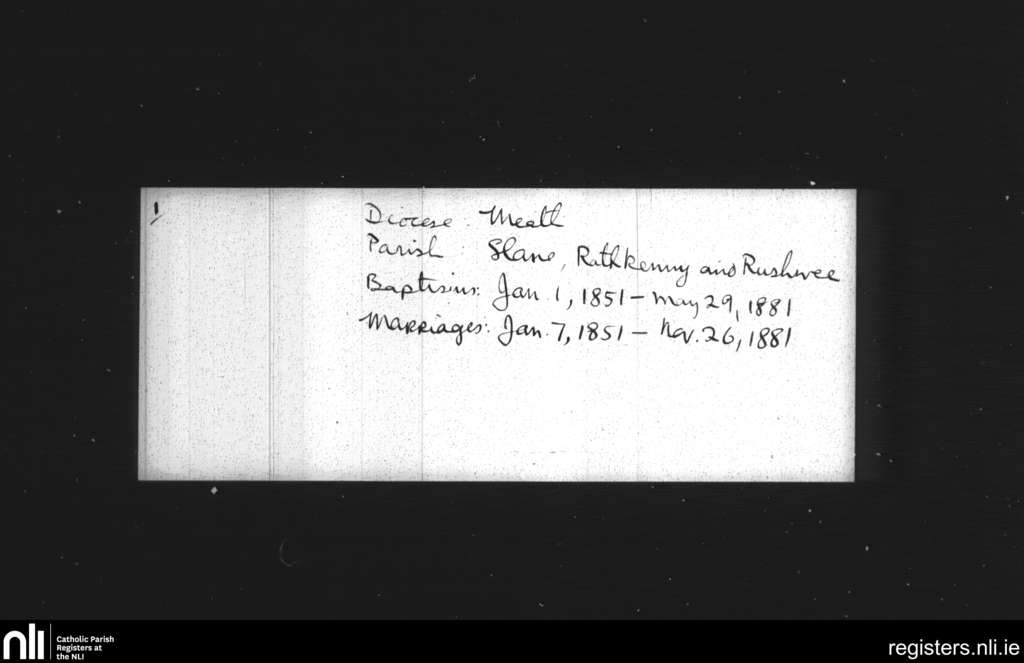 1
Diocese : Meath
Parish : Slane, Rathkenny and Rushwee
Baptisms: Jan. 1, 1851 – May 29, 1881
Marriages: Jan. 7, 1851 – Nov. 26, 1881
nli
Catholic Parish
Registers at
the NLI
registers.nli.ie